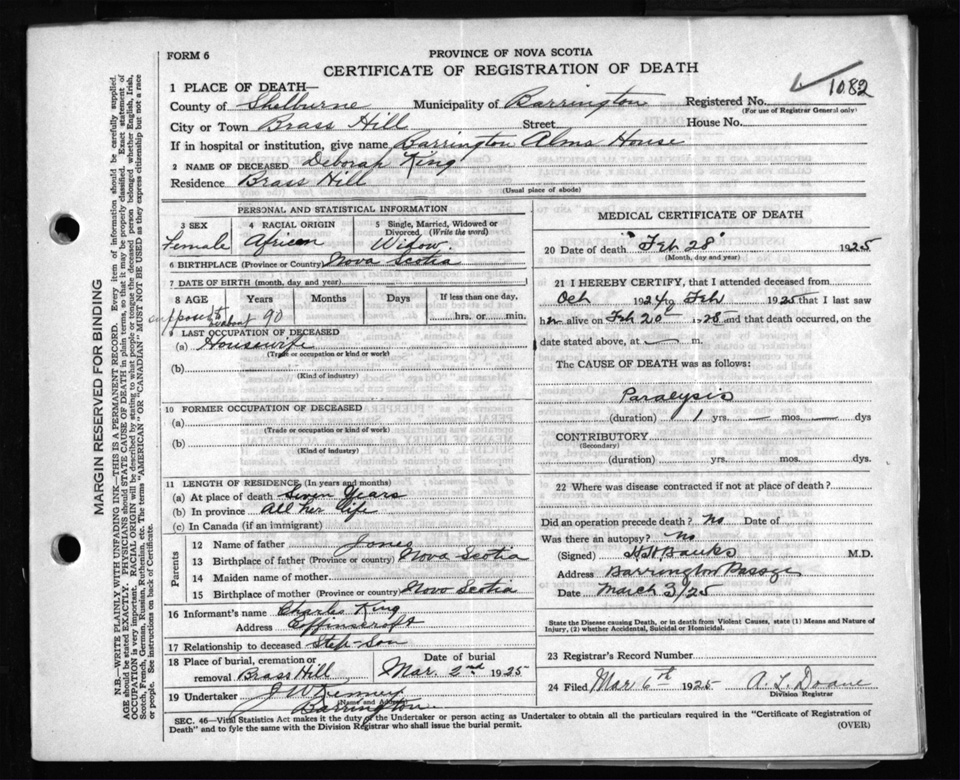 FORM 6
PROVINCE OF NOVA SCOTIA
CERTIFICATE OF REGISTRATION OF DEATH
1082
1 PLACE OF DEATH—
County of Shelburne Municipality of Barrington Registered No.
(For use of Registrar General only)
City or Town Brass Hill Street House No.
If in hospital or institution, give name Barrington Alms House
2 NAME OF DECEASED Deborah King
Residence Brass Hill
(Usual place of abode)
PERSONAL AND STATISTICAL INFORMATION
3 SEX 4 RACIAL ORIGIN 5 Single, Married, Widowed or Divorced, (Write the word)
Female African Widow.
6 BIRTHPLACE (Province or Country) Nova Scotia
7 DATE OF BIRTH (month, day and year)
8 AGE Years Months Days If less than one day,
supposed to be about 90 hrs. or min.
9 LAST OCCUPATION OF DECEASED
(a) Housewife
(Trade or occupation or kind or work)
(b)
(Kind of industry)
10 FORMER OCCUPATION OF DECEASED
(a)
(Trade or occupation or kind or work)
(b)
(Kind of industry)
11 LENGTH OF RESIDENCE (In years and months)
(a) At place of death Seven Years
(b) In province All her life
(c) In Canada (if an immigrant)
Parents
12 Name of father Jones
13 Birthplace of father (Province or country) Nova Scotia
14 Maiden name of mother
15 Birthplace of mother (Province or country) Nova Scotia
16 Informant's name Charles King
Address Coffinscroft
17 Relationship to deceased Step-Son
18 Place of burial, cremation or removal Brass Hill Date of burial Mar. 2nd 1925
19 Undertaker J W Kenney
(Name and Address)
Barrington.
MEDICAL CERTIFICATE OF DEATH
20 Date of death "Feb 28" 1925
(Month, day and year)
21 I HEREBY CERTIFY, that I attended deceased from
Oct 1924 to Feb 1925 that I last saw
her alive on Feb 20th 1925 and that death occurred, on the
date stated above, at — m.
The CAUSE OF DEATH was as follows:
Paralysis
(duration) 1 yrs. — mos. — dys
CONTRIBUTORY
(Secondary)
(duration) yrs. mos. dys.
22 Where was disease contracted if not at place of death?
Did an operation precede death? No Date of
Was there an autopsy? No
(Signed) Banks M.D.
Address Barrington Passage
Date March 3/25
State the Disease causing Death, or in death from Violent Causes, state (1) Means and Nature of
Injury, (2) whether Accidental, Suicidal or Homicidal.
23 Registrar's Record Number
24 Filed Mar 6th 1925 A. L. Doane
Division Registrar
SEC. 46—Vital Statistics Act makes it the duty of the Undertaker or person acting as Undertaker to obtain all the particulars required in the "Certificate of Registration of
Death" and to fyle the same with the Division Registrar who shall issue the burial permit. (OVER)
MARGIN RESERVED FOR BINDING
N.B.—WRITE PLAINLY WITH UNFADING INK—THIS IS A PERMANENT RECORD. Every item of information should be carefully supplied.
AGE should be stated EXACTLY. PHYSICIANS should STATE CAUSE OF DEATH in plain terms, so that it may be properly classified. Exact statement of
OCCUPATION is very important. RACIAL ORIGIN will be described by stating to what people or tongue the deceased person belonged whether English, Irish,
Scotch, French, German, Russian, Ruthenian, etc. The terms "AMERICAN" OR "CANADIAN" MUST NOT BE USED as they express citizenship but not a race
or people. See instructions on back of Certificate.